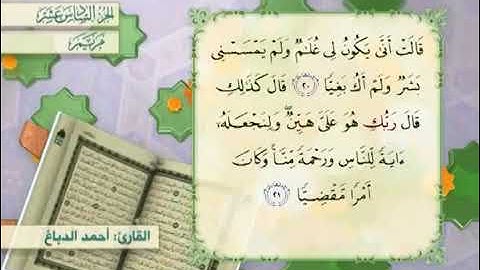 الجزء السادس عشر
مريم
قَالَتْ أَنَّىٰ يَكُونُ لِى غُلَٰمٌ وَلَمْ يَمْسَسْنِى
بَشَرٌ وَلَمْ أَكُ بَغِيًّا ﴿٢٠﴾ قَالَ كَذَٰلِكِ
قَالَ رَبُّكِ هُوَ عَلَىَّ هَيِّنٌ ۖ وَلِنَجْعَلَهُۥٓ
ءَايَةً لِّلنَّاسِ وَرَحْمَةً مِّنَّا ۚ وَكَانَ
أَمْرًا مَّقْضِيًّا ﴿٢١﴾
القارئ: أحمد الدباغ